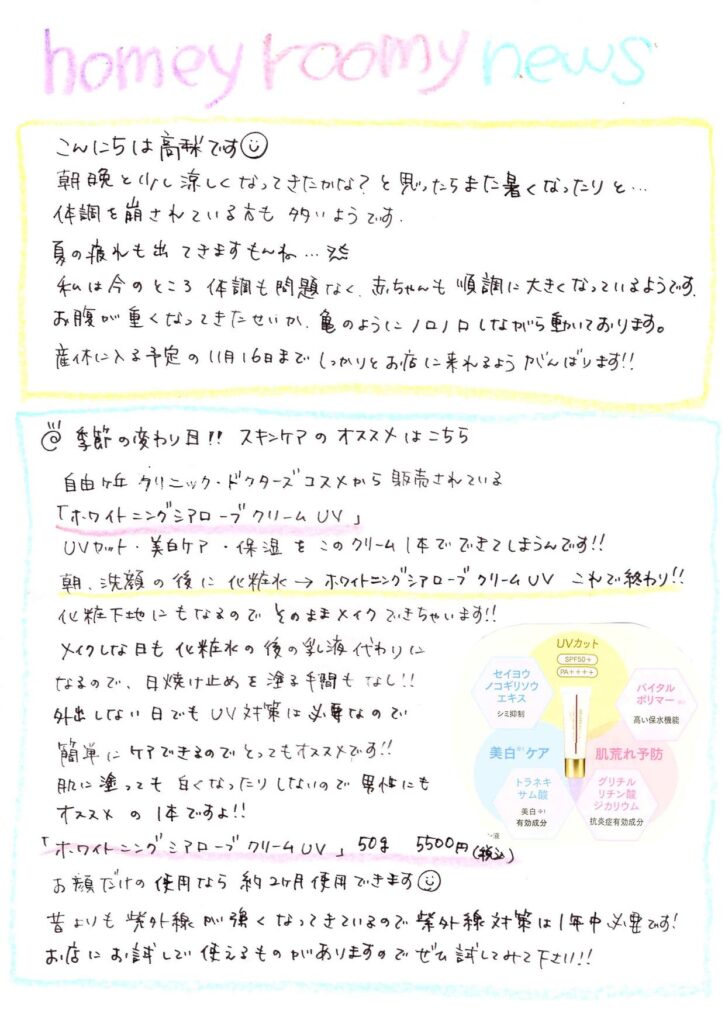 homey roomy news
こんにちは高球です
朝晩と少し涼しくなってきたかな?と思ったらまた暑くなったりと…
体調を崩されている方も多いようです.
夏の疲れも出てきますもんね…
私は今のところ体調も問題なく、赤ちゃんも順調に大きくなっているようです.
お腹が重くなってきたせいか、亀のようにノロノロしながら動いております。
産休に入る予定の11月16日までしっかりとお店に来れるようがんばります!!
季節の変わり目!! スキンケアのオススメはこちら
自由ヶ丘クリニック・ドクターズコスメから販売されている
「ホワイトニングシアローブクリームUV」
UVカット・美白ケア・保湿をこのクリーム1本でできてしまうんです!!
朝、洗顔の後に化粧水→ホワイトニングシアローブクリームUV これで終わり!!
化粧下地にもなるのでそのままメイクできちゃいます!!
メイクしな日も化粧水の後の乳液代わりに
なるので、日焼け止めを塗る手間もなし!!
外出しない日でもUV対策は必要なので
簡単にケアできるのでとってもオススメです!!
肌に塗っても白くなったりしないので男性にも
オススメの1本ですよ!!
UVカット
SPF50+
PA++++
セイヨウ
ノコギリソウ
エキス
シミ抑制
バイタル
ポリマー
高い保水機能
美白ケア
肌荒れ予防
トラネキ
サム酸
美白
有効成分
グリチル
リチン酸
ジカリウム
抗炎症有効成分
「ホワイトニングシアローブクリームUV」 50g 5500円(税込)
お顔だけの使用なら約2ヶ月使用できます
昔よりも紫外線が強くなってきているので紫外線対策は1年中必要です!
お店にお試しで使えるものがありますのでぜひ試してみて下さい!!